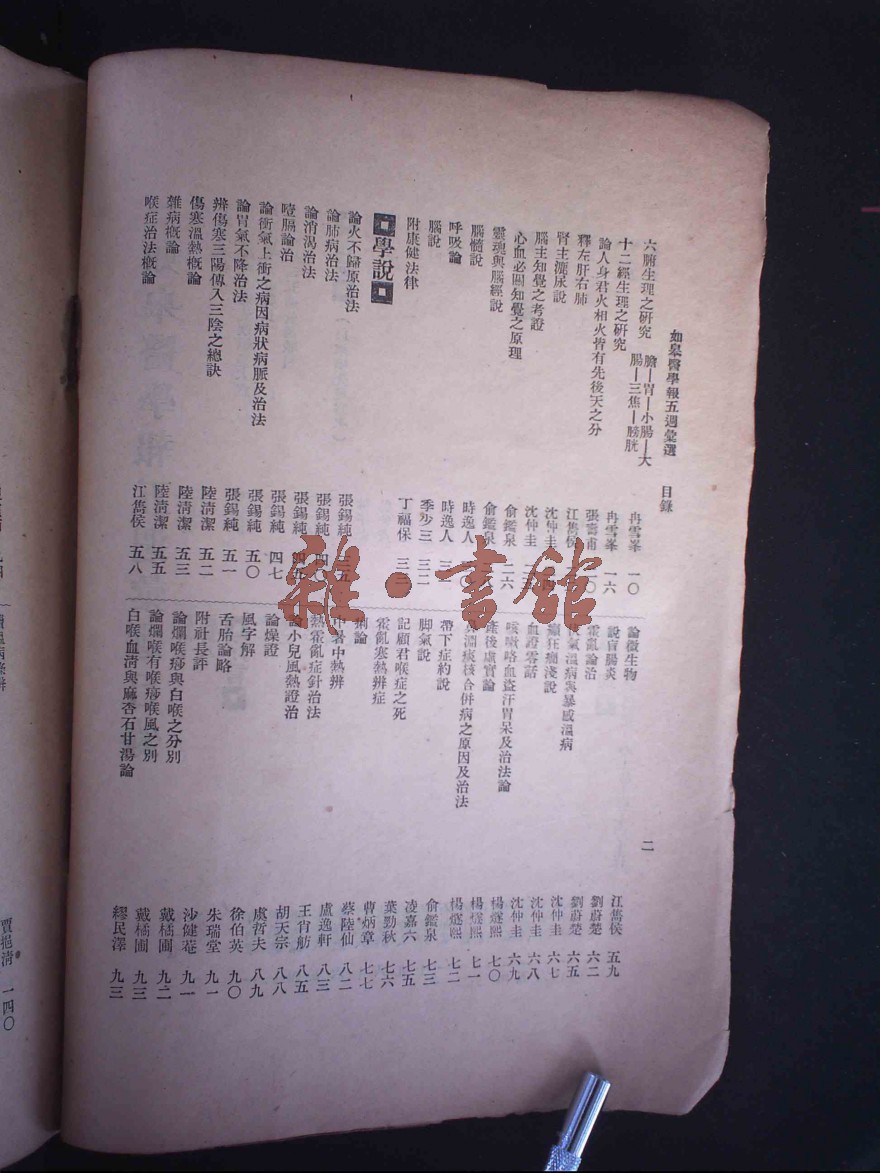 如皋醫學報五週彙選　目錄　二
六腑生理之硏究　膽—胃—小腸—大腸—三焦—膀胱　冉雪峯　一〇
十二經生理之硏究　冉雪峯　一六
論人身君火相火皆有先後天之分　張壽甫　二〇
釋左肝右肺　江雋侯
腎主漉尿說　沈仲圭
腦主知覺之考證　沈仲圭
心血必關知覺之原理　俞鑑泉　二六
靈魂與腦經說　俞鑑泉
腦髓說　時逸人
呼吸論　時逸人　三一
腦說　季少三　三二
附康健法律　丁福保　三三
學說
論火不歸原治法　張錫純　三五
論肺病治法　張錫純　四〇
論消渴治法　張錫純　四五
噎膈論治　張錫純　四七
論衝氣上衝之病因病狀病脈及治法　張錫純　五〇
論胃氣不降治法　張錫純　五一
辨傷寒三陽傳入三陰之總訣　陸清潔　五二
傷寒溫熱概論　陸清潔　五三
雜病概論　陸清潔　五五
喉症治法概論　江雋侯　五八
論微生物　江雋侯　五九
說盲腸炎　劉蔚楚　六二
霍亂論治　劉蔚楚　六五
氣溫病與暴感溫病　沈仲圭　六七
癲狂癇淺說　沈仲圭　六八
血證零話　沈仲圭　六九
咳嗽咯血盜汗胃呆及治法論　楊燧熙　七〇
產後虛實論　楊燧熙　七一
鼻淵痰核合併病之原因及治法　楊燧熙　七二
帶下症約說　俞鑑泉　七三
脚氣說　凌嘉六　七五
記顧君喉症之死　葉勁秋　七六
霍亂寒熱辨症　曹炳章　七七
痢論　蔡陸仙　八二
中暑中熱辨　盧逸軒　八三
熱霍亂症針治法　王肖舫　八五
論小兒風熱證治　胡天宗　八八
論燥證　虞哲夫　八九
風字解　徐伯英　九〇
舌胎論略　朱瑞堂　九一
附社長評　沙健菴　九一
論爛喉痧與白喉之分別　戴橘圃　九二
論爛喉有喉痧喉風之別　戴橘圃　九三
白喉血清與麻杏石甘湯論　繆民澤　九三
一四〇
雜·書館